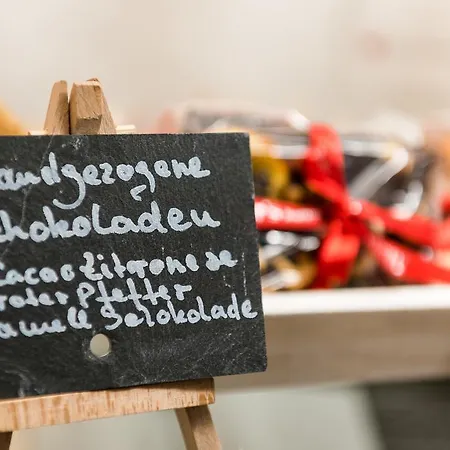 andgezogene
schokoladen
Cacao Zitrone
roter Pfeffer
Schokolade